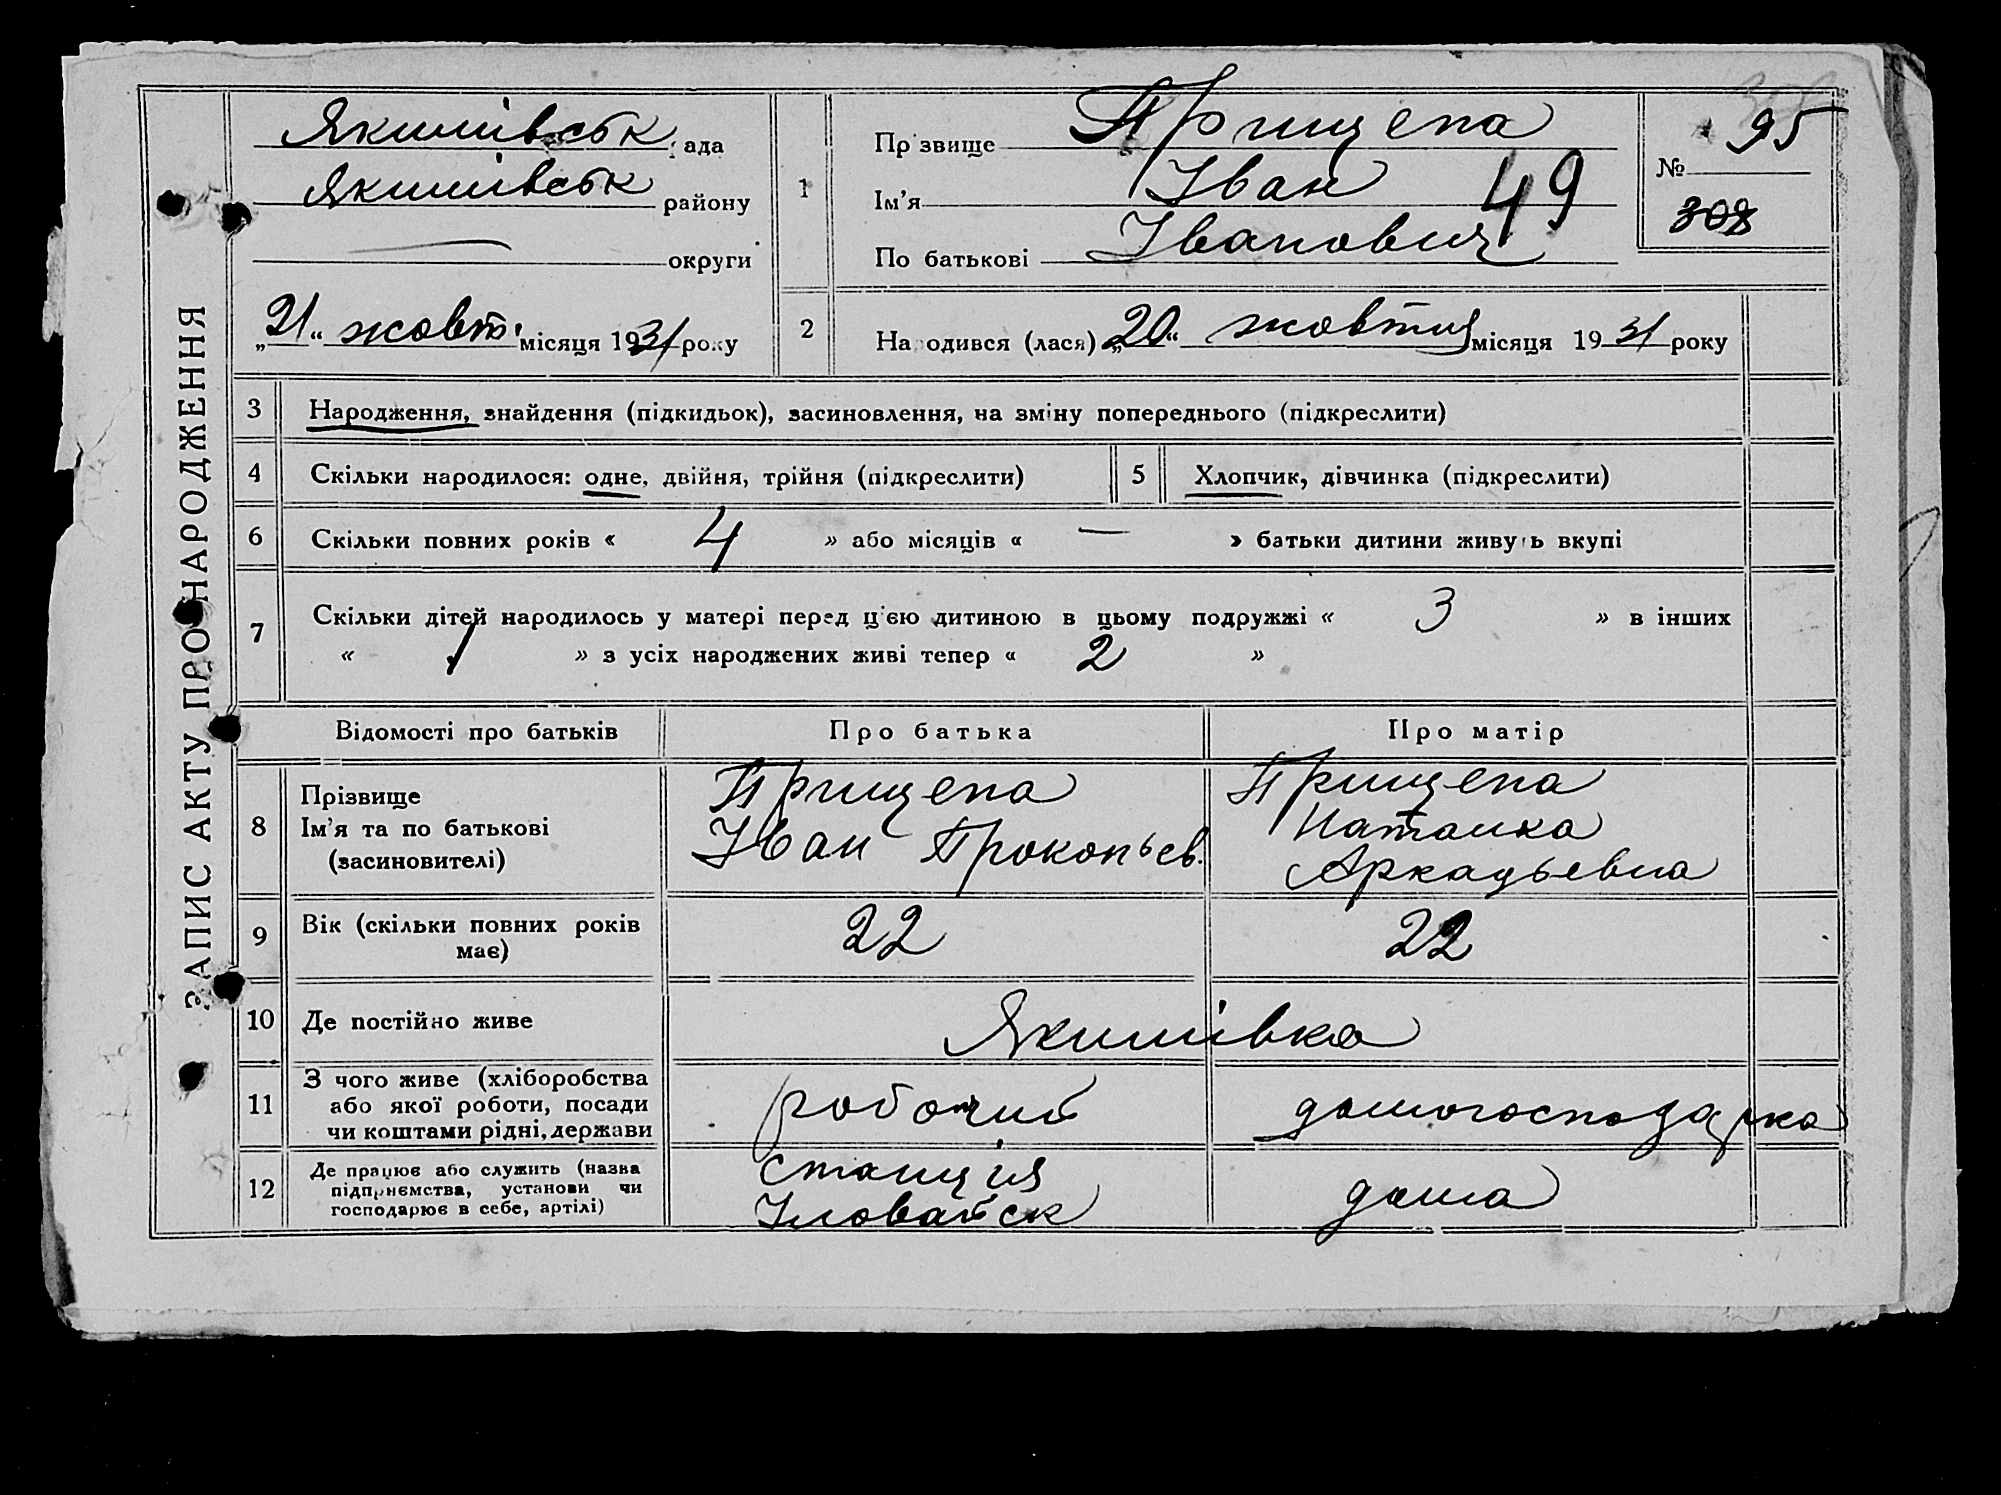 ЗАПИС АКТУ ПРО НАРОДЖЕННЯ
Якимівськ рада
Якимівськ району
округи
„21“ жовт. місяця 1931 року
1
Прізвище Прищепа
Ім'я Іван
49
По батькові Іванович
№ 95
308
2
Народився (лася) „20“ жовтня місяця 1931 року
3 Народження, знайдення (підкидьок), засиновлення, на зміну попереднього (підкреслити)
4 Скільки народилося: одне, двійня, трійня (підкреслити) 5 Хлопчик, дівчинка (підкреслити)
6 Скільки повних років « 4 » або місяців « — » батьки дитини живуть вкупі
7 Скільки дітей народилось у матері перед цією дитиною в цьому подружжі « 3 » в інших
« 1 » з усіх народжених живі тепер « 2 »
Відомості про батьків Про батька Про матір
8 Прізвище
Ім'я та по батькові
(засиновителі)
Прищепа
Іван Прокопьев.
Прищепа
Наталка
Аркадьевна
9 Вік (скільки повних років
має)
22 22
10 Де постійно живе Якимівка
11 З чого живе (хліборобства
або якої роботи, посади
чи коштами рідні, держави
робочий домогосподарка
12 Де працює або служить (назва
підприємства, установи чи
господарює в себе, артілі)
станція
Іловайск
дома